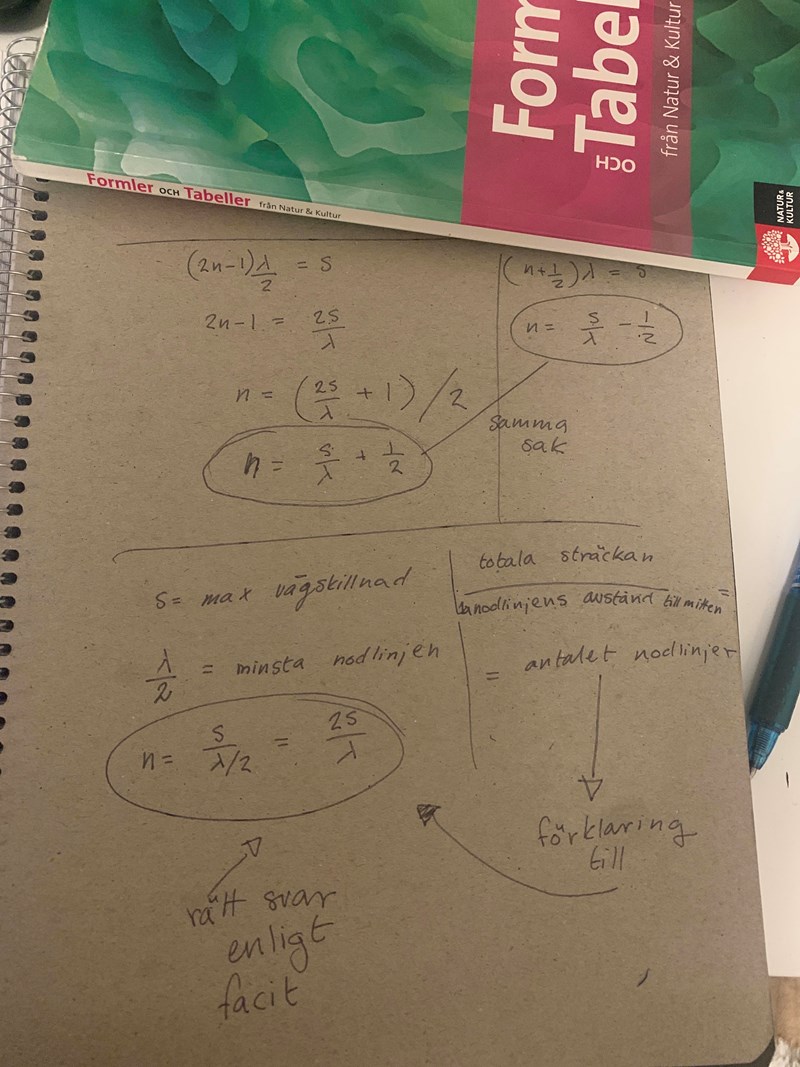 Form
Tabel
OCH
från Natur & Kultur
NATUR & KULTUR
Formler OCH Tabeller från Natur & Kultur
(2n-1) λ/2 = s
2n-1 = 2s/λ
n = (2s/λ + 1) / 2
n = s/λ + 1/2
(n+1/2) λ = s
n = s/λ - 1/2
samma
sak
s = max vägskillnad
λ/2 = minsta nodlinjen
n = s/(λ/2) = 2s/λ
rätt svar
enligt
facit
totala sträckan
1a nodlinjens avstånd till mitten =
= antalet nodlinjer
förklaring
till